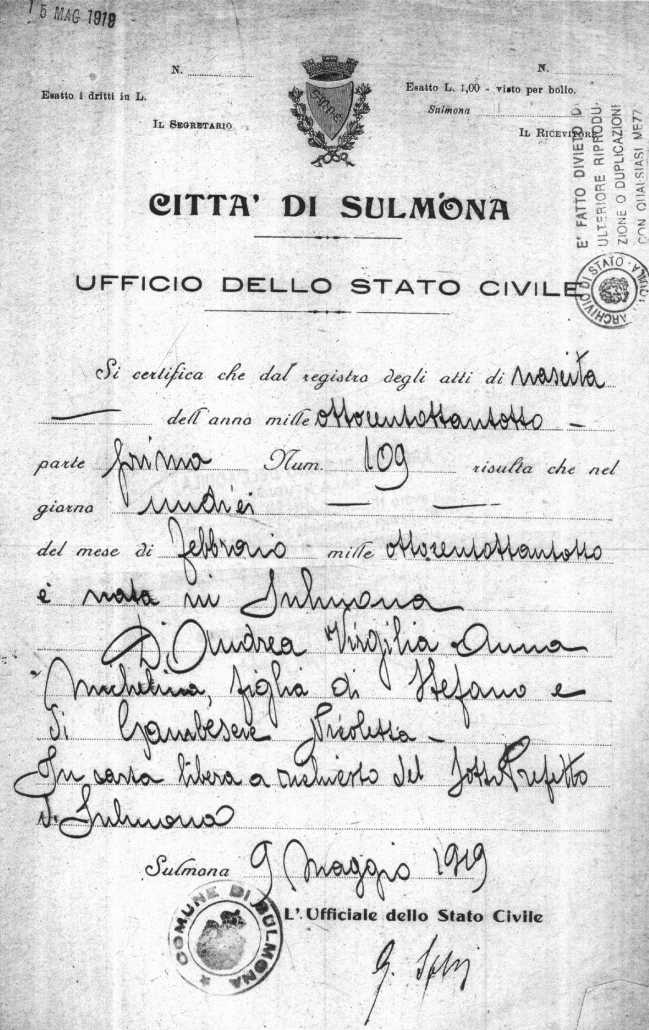 15 MAG 1919
N.
N.
Esatto i dritti in L.
Esatto L. 1,00 - visto per bollo.
Sulmona
IL SEGRETARIO
IL RICEVITORE
SMPE
E' FATTO DIVIETO D
ULTERIORE RIPRODU-
ZIONE O DUPLICAZIONI
CON QUALSIASI MEZZ
CITTA' DI SULMONA
UFFICIO DELLO STATO CIVILE
ARCHIVIO DI STATO
Si certifica che dal registro degli atti di nascita
dell'anno mille ottocentottantotto
parte prima Num. 109 risulta che nel
giorno undici
del mese di febbraio mille ottocentottantotto
è nata in Sulmona
D'Andrea Virgilia Anna
Michelina, figlia di Stefano e
di Nicoletta
In carta libera a richiesta del Sotto Prefetto
di Sulmona
Sulmona 9 Maggio 1919
L'Ufficiale dello Stato Civile
COMUNE DI SULMONA
G.